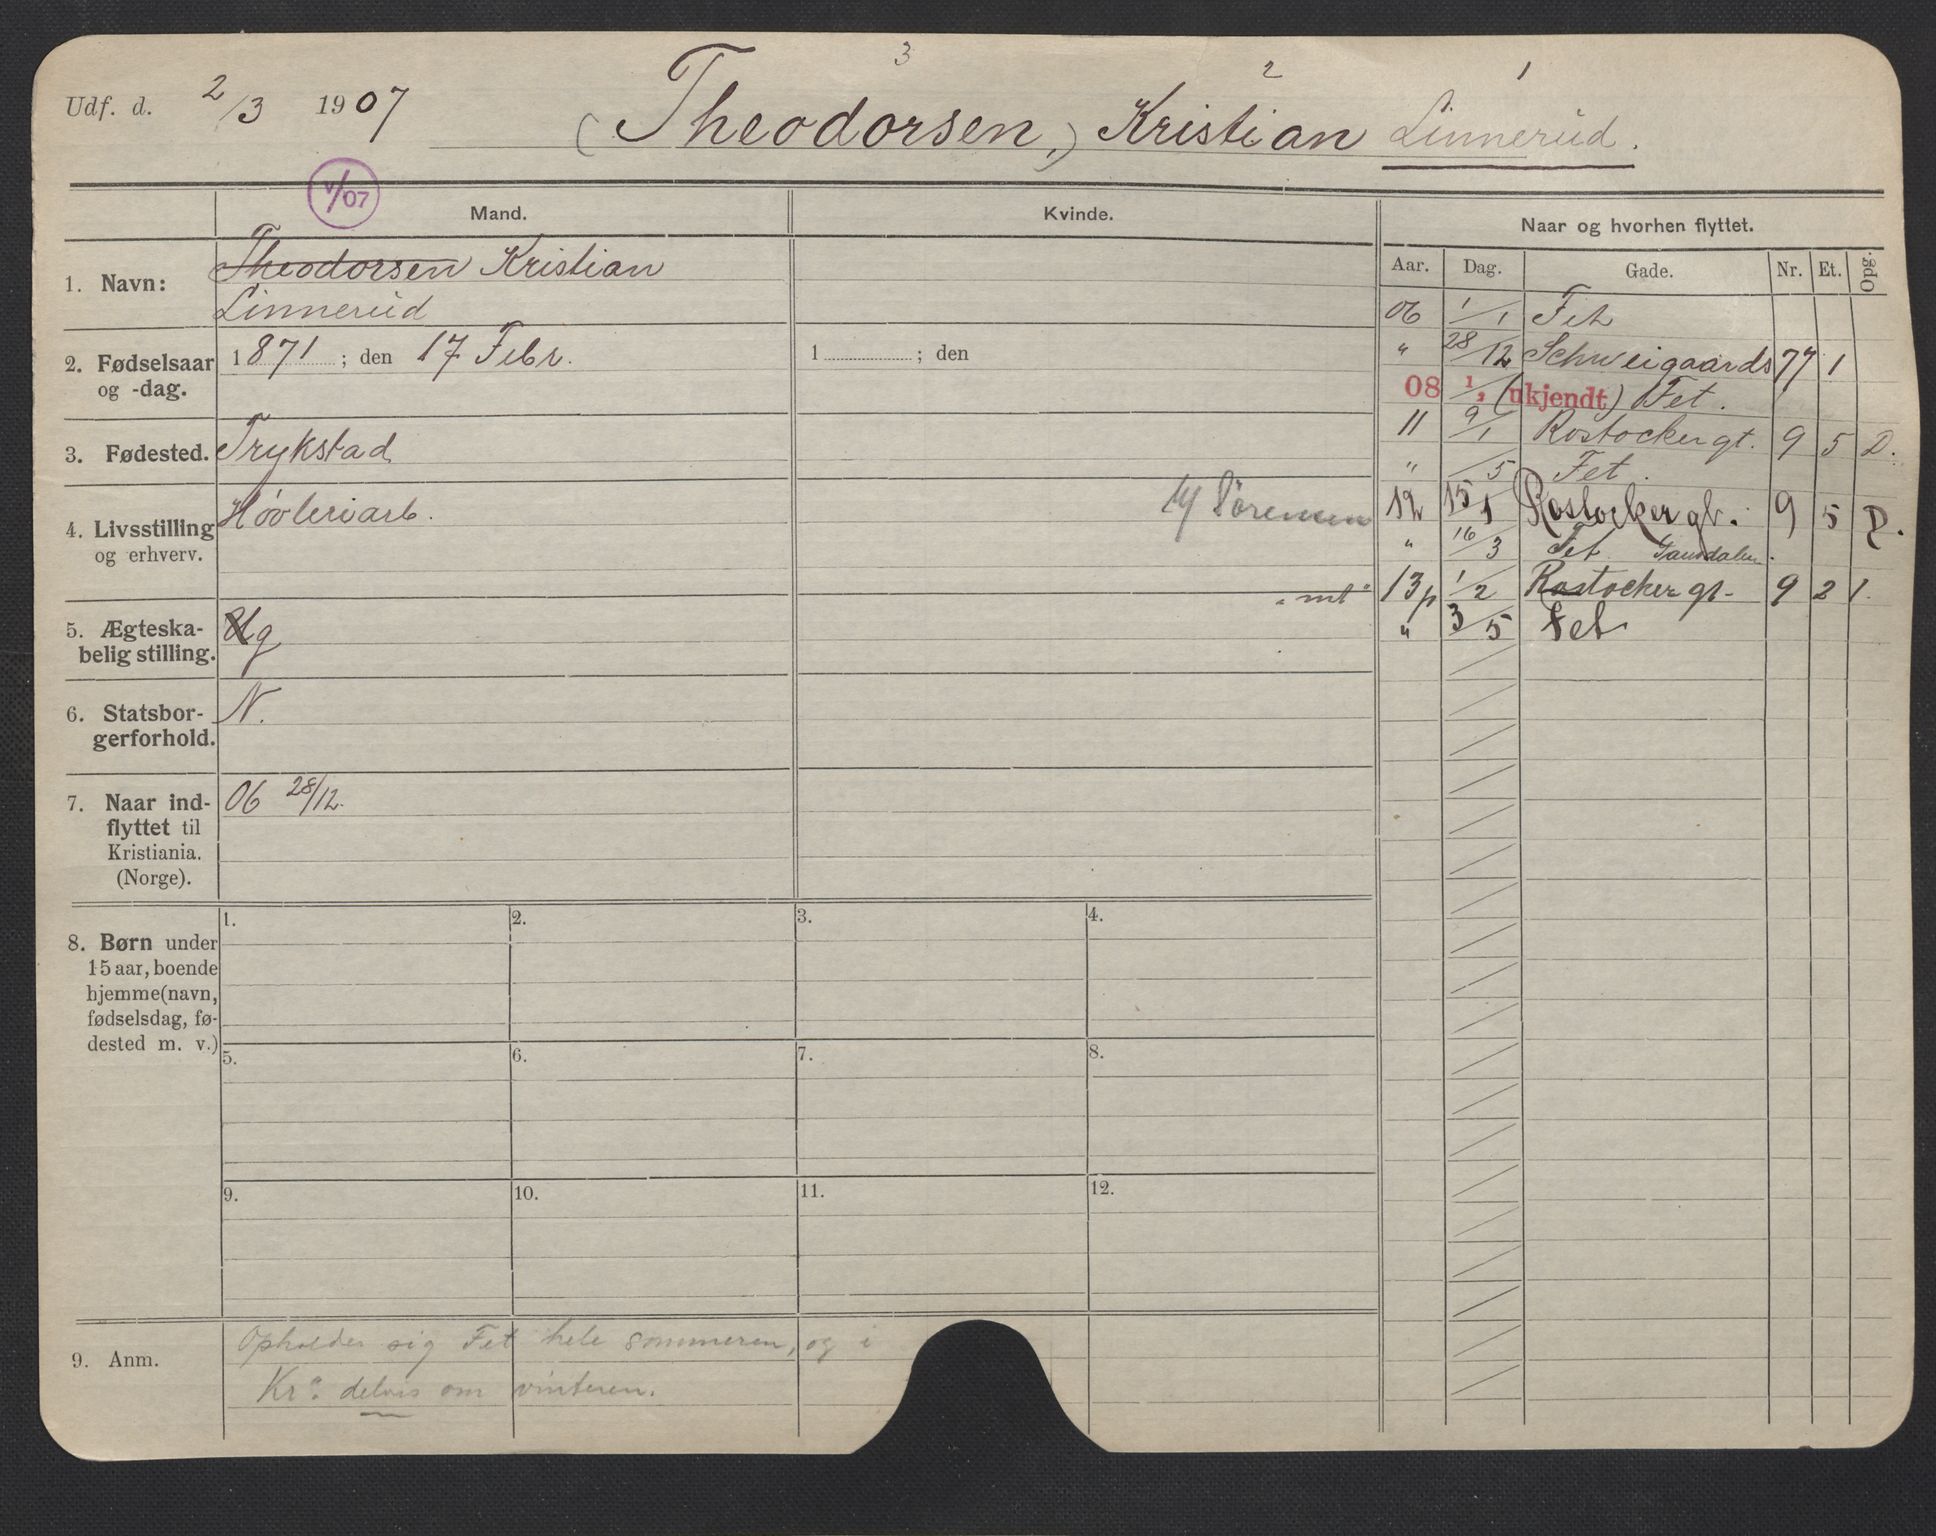 3 2 1
Udf. d. 2/3 1907 (Theodorsen,) Kristian Linnerud.
V/07
Mand. Kvinde. Naar og hvorhen flyttet.
Aar. Dag. Gade. Nr. Et. Opg.
1. Navn: Theodorsen Kristian
Linnerud
2. Fødselsaar og -dag. 1871 ; den 17 Febr. 1 ; den
3. Fødested. Trykstad
4. Livsstilling og erhverv. Høvleriarb.
5. Ægteska-
belig stilling. Ug
6. Statsbor-
gerforhold. N.
7. Naar ind-
flyttet til
Kristiania.
(Norge). 06 28/12.
06 1/1 Fet
" 28/12 Schweigaards 77 1
08 1/1 (ukjendt) Fet.
11 9/1 Rostockergt. 9 5 D.
" /5 Fet.
M Sörensen 12 15/1 Rostocker gt. 9 5 D.
" 16/3 Fet
" mt " 13 p 1/2 Rostocker gt. 9 2 1.
" 3/5 Fet
8. Børn under
15 aar, boende
hjemme (navn,
fødselsdag, fø-
dested m. v.)
1. 2. 3. 4.
5. 6. 7. 8.
9. 10. 11. 12.
9. Anm. Opholder sig Fet hele sommeren, og i
Kr.a delvis om vinteren.